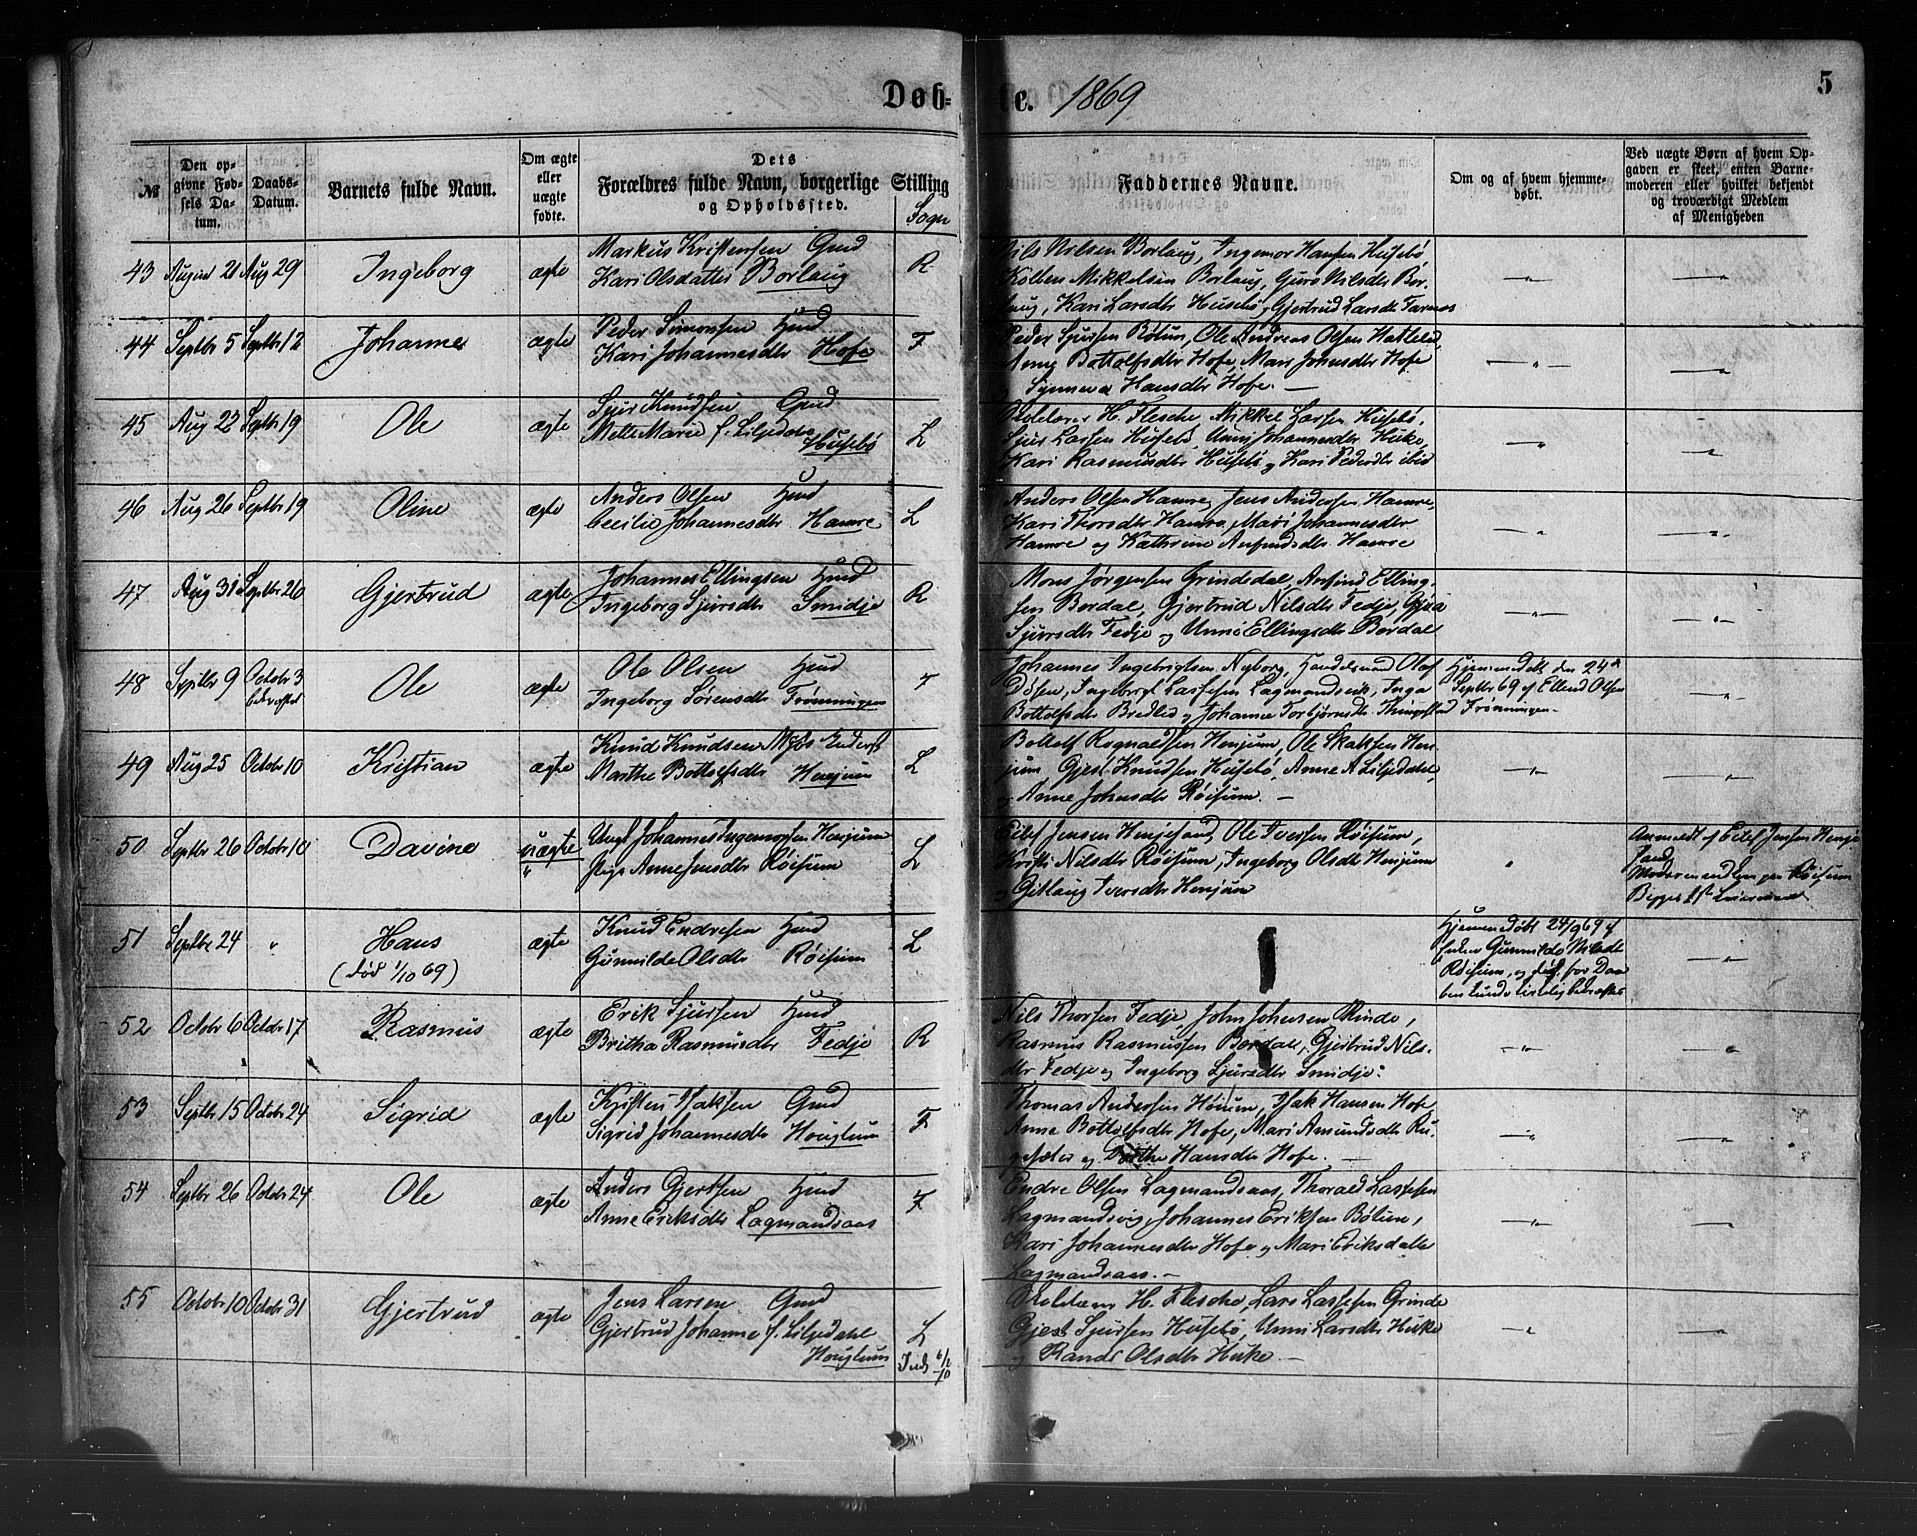 Døb-
te. 1869
5
№
Den op-
givne Fød-
sels Da-
tum.
Daabs-
Datum.
Barnets fulde Navn.
Om ægte
eller
uægte
fødte.
Dets
Forældres fulde Navn, borgerlige Stilling
og Opholdssted.
Sogn
Faddernes Navne.
Om og af hvem hjemme-
døbt.
Ved uægte Børn af hvem Op-
gaven er skeet, enten Barne-
moderen eller hvilket bekjendt
og troværdigt Medlem
af Menigheden
43 August 21 Aug 29 Ingeborg ægte
Markus Kristensen Gmd
Kari Olsdatter Borlaug R
Nils Nilsen Borlaug, Ingemor Hansen Husebö,
Kolben Mikkelsen Borlaug, Guro Nilsdtr Bor-
laug, Kari Larsdtr Husebö, Gjertrud Larsdtr
44 Septbr 5 Septbr 12 Johanne ægte
Peder Simonsen Hmd
Kari Johannesdtr Hofe F
Peder Sjursen Bölum, Ole Andreas Olsen Hatlelid,
Anna Bottolfsdtr Hofe, Mari Johnsdtr Hofe
Synneva Hansdtr Hofe. —
45 Aug 22 Septbr 19 Ole ægte
Sjur Knudsen Gmd
Mette Marie f. Liljedahl
Husebö L
H. Flesche, Mikkel Larsen Husebö,
Sjur Lassen Husebö, Unni Johannesdtr Huke,
Kari Rasmusdtr Husebö og Kari Pedersdtr ibid
46 Aug 26 Septbr 19 Oline ægte
Anders Olsen Hmd
Cecilie Johannesdtr Hamre L
Anders Olsen Hamre, Jens Andersen Hamre,
Kari Thorsdtr Hamre, Mari Johannesdtr
Hamre og Kathrine Anfindsdtr Hamre
47 Aug 31 Septbr 26 Gjertrud ægte
Johannes Ellingsen Hmd
Ingeborg Sjursdtr Smidje R
Mons Jørgensen Grindsdal, Anfind Elling-
sen Bordal, Gjertrud Nilsdtr Fedje,
Sjursdtr Fedje og Unni Ellingsdtr Bordal
48 Septbr 9 Octobr 3 Ole ægte
Ole Olsen Hmd
Ingeborg Sørensdtr Frønningen F
Johannes Ingebrigtsen Nyborg, Handelsmand Olaf
Olsen, Ingeborg Lassesen Lagmandsvik, Inga
Bottolfsdtr Bredled og Johanne Torbjørnsdtr Thingstad
Hjemmedøbt den 24de
Septbr 69 af Ellend Olsen
Frønningen.
49 Aug 25 Octobr 10 Kristian ægte
Knud Knudsen
Marthe Bottolfsdtr Henjum L
Bottolf Rognaldsen Henjum, Ole Skaksen Hen-
jum Gjest Knudsen Husebö, Anne A Liljedahl,
og Anne Johnsdtr Röisum. —
50 Septbr 26 Octobr 10 Davine uægte
Ungk Johannes Ingemorsen Henjum
Pige Anne Jensdtr Röisum L
Eilef Jensen Henjesand, Ole Iversen Röisum,
Kristi Nilsdtr Röisum, Ingeborg Olsdtr Henjum
og Gitlaug Iversdtr Henjum
Anmeldt af Eilef Jensen Henje
sand,
Moderen Röisum
Begges 1ste
51 Septbr 24 Hans
(död 1/10 69) ægte
Knud Endresen Hmd
Gunnilde Olsdtr Röisum L
Hjemmedøbt 24/9 69 af
Gunnilde Nilsdtr
Röisum, og død før Daa-
ben kunde kirkelig bekræftes
52 Octobr 6 Octobr 17 Rasmus ægte
Erik Sjursen Hmd
Britha Rasmusdtr Fedje R
Nils Thorsen Fedje, John Johnsen Rinde,
Rasmus Rasmussen Bordal, Gjertrud Nils-
dtr Fedje og Ingeborg Sjursdtr Smidje.
53 Septbr 15 Octobr 24 Sigrid ægte
Kristen Isaksen Gmd
Sigrid Johannesdtr Houglum F
Thomas Andersen Høium, Isak Hansen Hofe
Anne Bottolfsdtr Hofe, Mari Amundsdtr Ru-
gesæter og Dorthe Hansdtr Hofe. —
54 Septbr 26 Octobr 24 Ole ægte
Anders Gjertsen Hmd
Anne Eriksdtr Lagmandsaas F
Endre Olsen Lagmandsaas, Thorald Lassesen
Lagmandsvig, Johannes Eriksen Bölum,
Kari Johannesdtr Hofe og Mari Eriksdatter
Lagmandsaas. —
55 Octobr 10 Octobr 31 Gjertrud ægte
Jens Larsen Gmd
Gjertrud Johanne f. Liljedahl
Houglum L
H. Flesche, Lars Lassesen Grinde
Gjest Sjursen Husebö, Unni Larsdtr Huke
og Randi Olsdtr Huke —